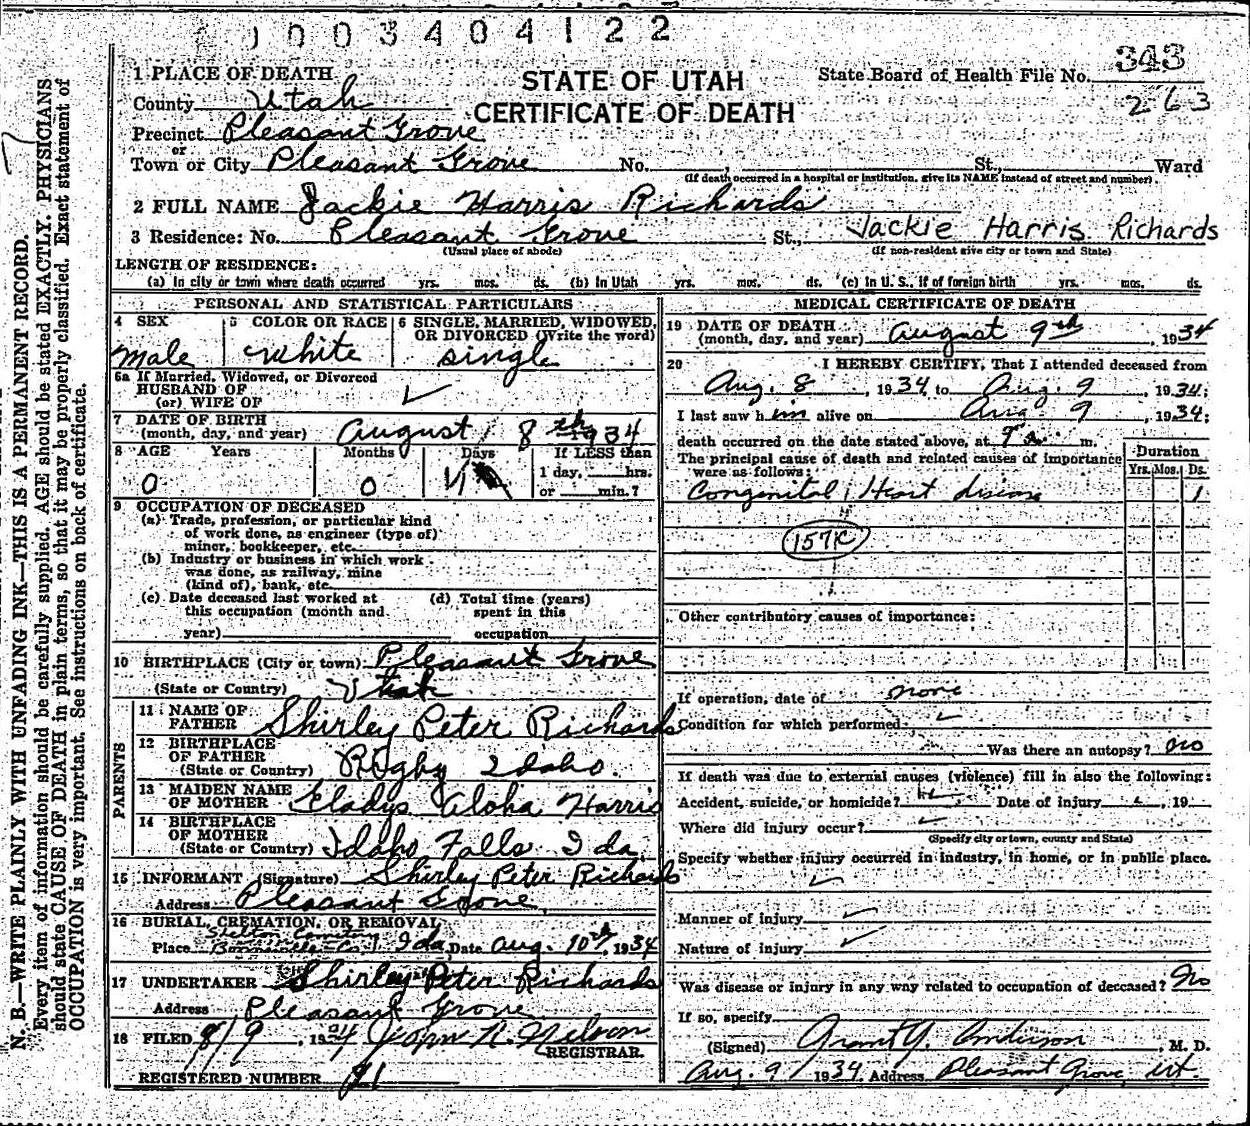 1003404122
343
1 PLACE OF DEATH
STATE OF UTAH
State Board of Health File No.
County Utah
CERTIFICATE OF DEATH
263
Precinct Pleasant Grove
or
Town or City Pleasant Grove No. , St., Ward
(If death occurred in a hospital or institution, give its NAME instead of street and number).
2 FULL NAME Jackie Harris Richards
3 Residence: No. Pleasant Grove St., Jackie Harris Richards
(Usual place of abode) (If non-resident give city or town and State)
LENGTH OF RESIDENCE:
(a) In city or town where death occurred yrs. mos. ds. (b) In Utah yrs. mos. ds. (c) In U. S. if of foreign birth yrs. mos. ds.
PERSONAL AND STATISTICAL PARTICULARS
4 SEX Male
5 COLOR OR RACE White
6 SINGLE, MARRIED, WIDOWED, OR DIVORCED (Write the word) single
6a If Married, Widowed, or Divorced
HUSBAND OF
(or) WIFE OF
7 DATE OF BIRTH
(month, day, and year) August 8th 1934
8 AGE Years 0 Months 0 Days 1 If LESS than
1 day, hrs.
or min.?
9 OCCUPATION OF DECEASED
(a) Trade, profession, or particular kind
of work done, as engineer (type of)
miner, bookkeeper, etc.
(b) Industry or business in which work
was done, as railway, mine
(kind of), bank, etc.
(c) Date deceased last worked at
this occupation (month and
year)
(d) Total time (years)
spent in this
occupation
10 BIRTHPLACE (City or town) Pleasant Grove
(State or Country) Utah
PARENTS
11 NAME OF
FATHER Shirley Peter Richards
12 BIRTHPLACE
OF FATHER
(State or Country) Rigby Idaho.
13 MAIDEN NAME
OF MOTHER Gladys Aloha Harris
14 BIRTHPLACE
OF MOTHER
(State or Country) Idaho Falls Ida
15 INFORMANT (Signature) Shirley Peter Richards
Address Pleasant Grove
16 BURIAL, CREMATION, OR REMOVAL
Shelton Cemetery
Place Bonneville Co. Ida Date Aug. 10th, 1934
17 UNDERTAKER Shirley Peter Richards
Address Pleasant Grove
18 FILED 8/9, 1934 John R. Nelson
REGISTRAR.
REGISTERED NUMBER 21
MEDICAL CERTIFICATE OF DEATH
19 DATE OF DEATH
(month, day, and year) August 9th, 1934
20 I HEREBY CERTIFY, That I attended deceased from
Aug. 8, 1934 to Aug. 9, 1934;
I last saw him alive on Aug 9, 1934;
death occurred on the date stated above, at 9 a. m.
The principal cause of death and related causes of importance
were as follows:
Duration
Yrs. Mos. Ds.
Congenital Heart disease 1
157K
Other contributory causes of importance:
If operation, date of none
Condition for which performed
Was there an autopsy? no
If death was due to external causes (violence) fill in also the following:
Accident, suicide, or homicide? Date of injury , 19
Where did injury occur?
(Specify city or town, county and State)
Specify whether injury occurred in industry, in home, or in public place.
Manner of injury
Nature of injury
Was disease or injury in any way related to occupation of deceased? No
If so, specify
(Signed) Grant Y. Anderson, M. D.
Aug. 9 1934. Address Pleasant Grove, Ut.
N. B.—WRITE PLAINLY WITH UNFADING INK—THIS IS A PERMANENT RECORD.
Every item of information should be carefully supplied. AGE should be stated EXACTLY. PHYSICIANS
should state CAUSE OF DEATH in plain terms, so that it may be properly classified. Exact statement of
OCCUPATION is very important. See instructions on back of certificate.